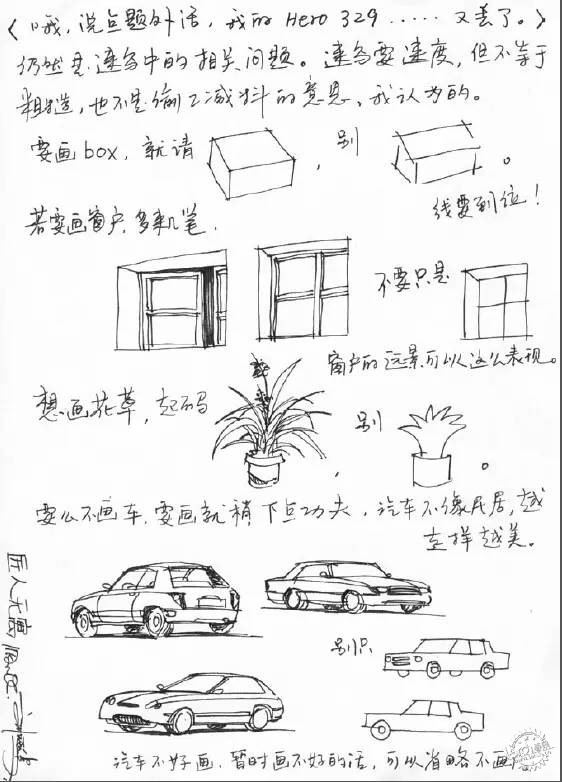 〈哦,说点题外话,我的 Hero 329 ……又丢了。〉
仍然是速写中的相关问题。速写要速度,但不等于
粗糙,也不是偷工减料的意思、我认为的。
要画box,就请 , 别 。
线要到位!
若要画窗户,多来几笔.
不要只是
窗户的远景可以这么表现。
想画花草,起码 , 别 。
要么不画车,要画就稍下点功夫,汽车不像民居,越
走样越美。
匠人无寓
别只
汽车不好画,暂时画不好的话,可以省略不画